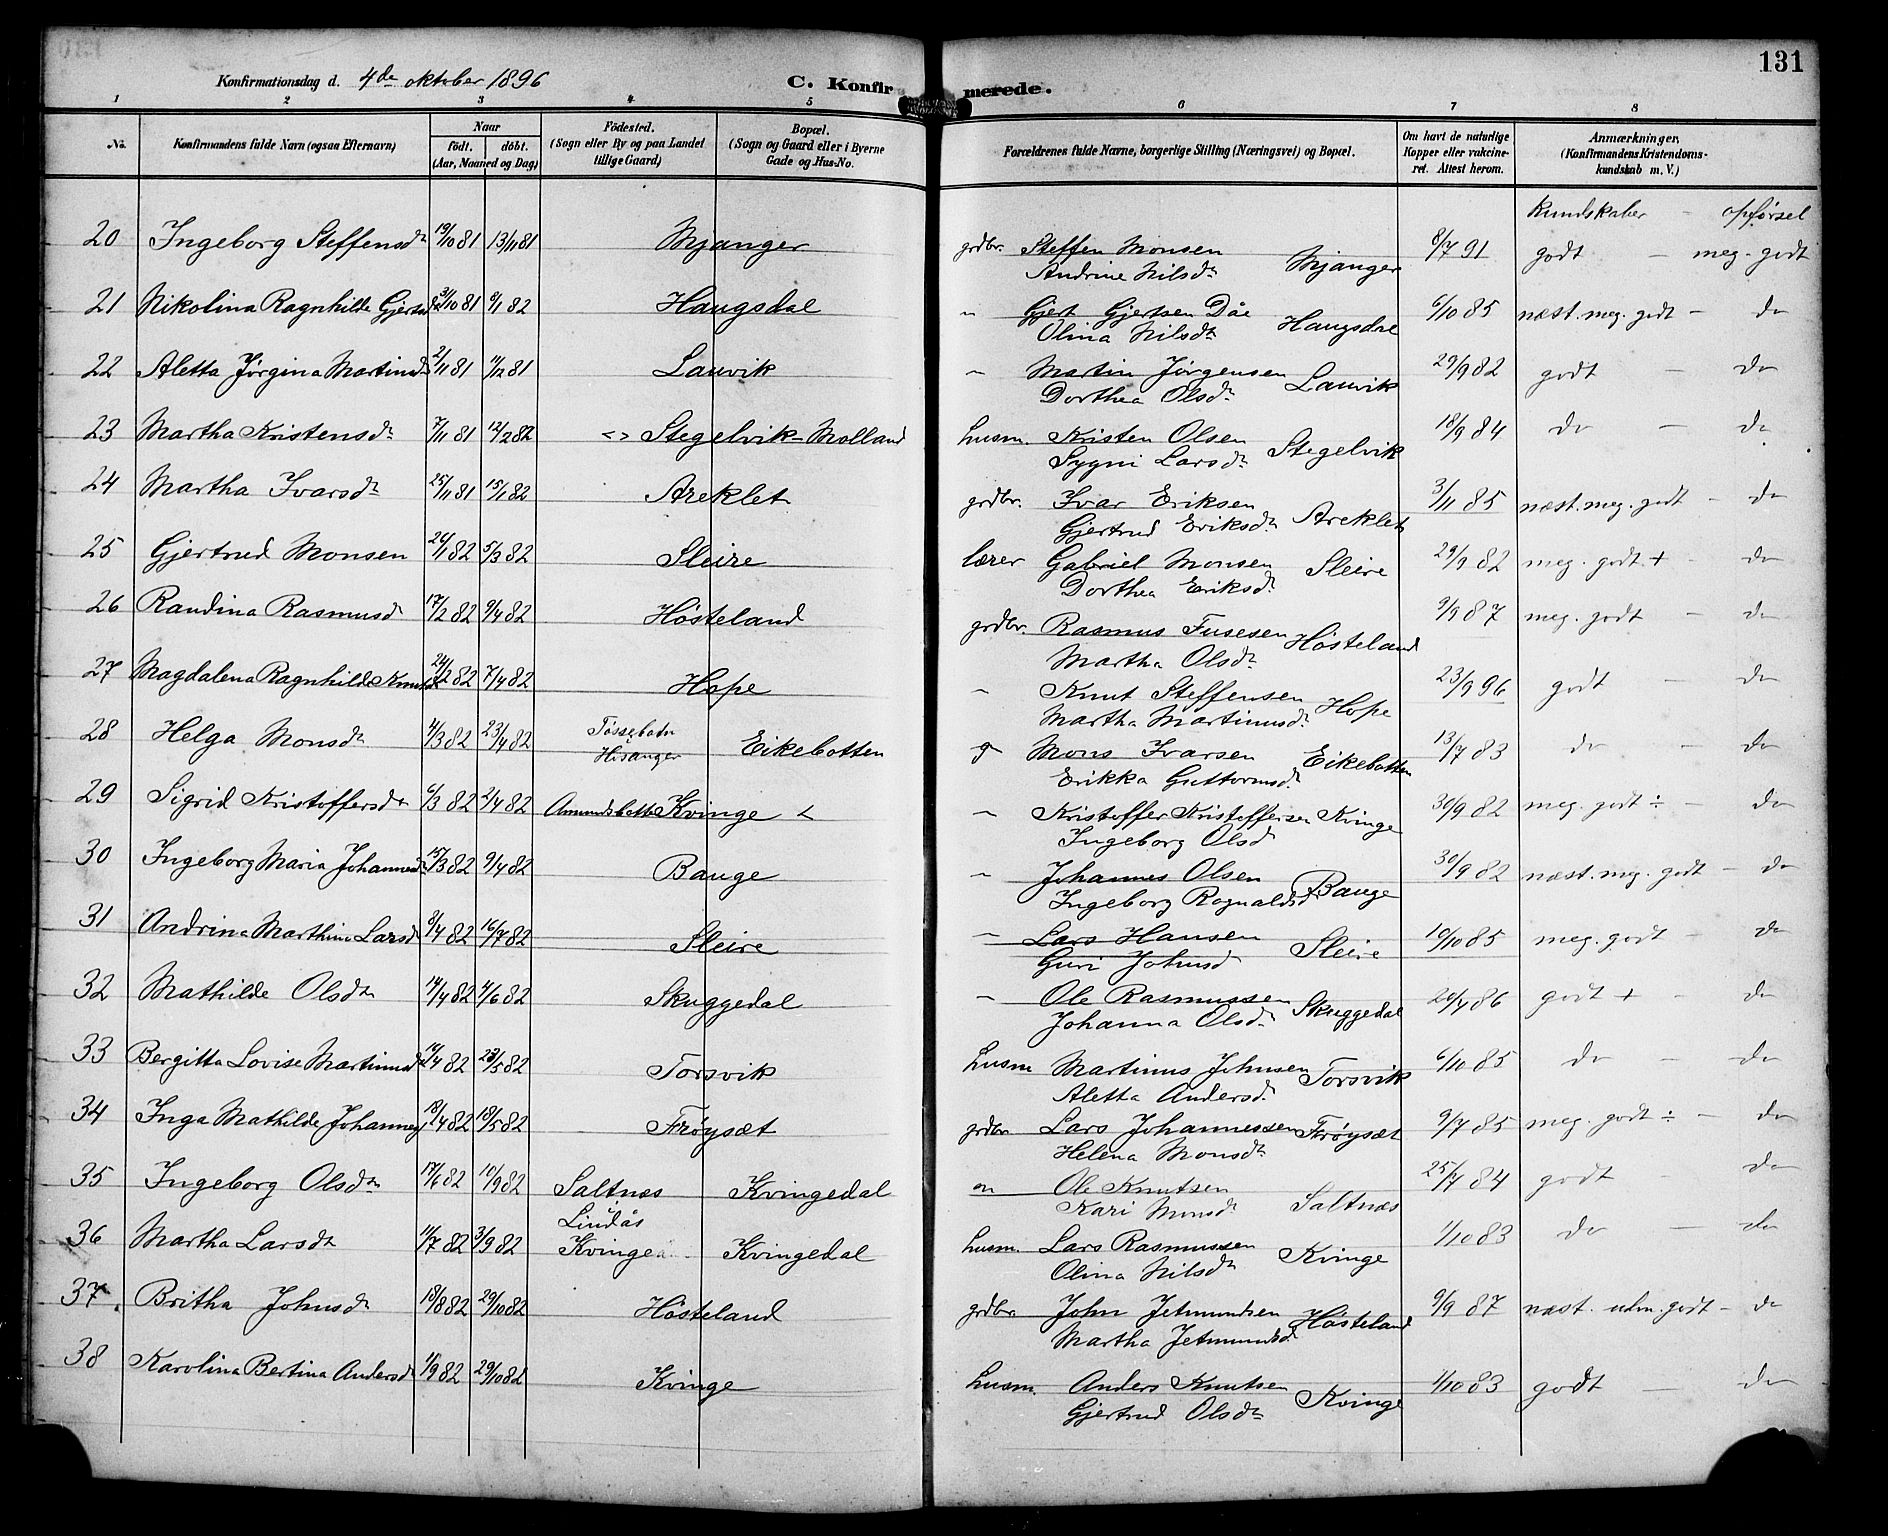 131
Konfirmationsdag d. 4de oktober 1896 C. Konfirmerede.
1 2 3 4 5 6 7 8
No. Konfirmandens fulde Navn (ogsaa Efternavn) Naar født. døbt. (Aar, Maaned og Dag) Födested. (Sogn eller By og paa Landet tillige Gaard) Bopæl. (Sogn og Gaard eller i Byerne Gade og Hus-No. Forældrenes fulde Navne, borgerlige Stilling (Næringsvei) og Bopæl. Om havt de naturlige Kopper eller vakcineret. Attest herom. Anmærkninger, (Konfirmandens Kristendomskundskab m. V.)
kundskaber - opførsel
20 Ingeborg Steffensdr 19/10 81 13/11 81 Mjanger grdbr. Steffen Monsen Mjanger 8/7 91 godt - meg. godt
Andrine Nilsdr
21 Nikolina Ragnhilde Gjertsd 31/10 81 6/1 82 Haugsdal " Gjert Gjertsen Dåe Haugsdal 6/10 85 næst. meg. godt - do
Olina Nilsdr
22 Aletta Jørgina Martinsdr 2/11 81 11/12 81 Lauvik " Martin Jørgensen Lauvik 29/9 82 godt - do
Dorthea Olsdr
23 Martha Kristensdr 7/11 81 12/2 82 <> Stegelvik - Molland husm. Kristen Olsen Stegelvik 18/9 84 do - do
Sygni Larsdr
24 Martha Ivarsdr 25/11 81 15/1 82 Areklet grdbr. Ivar Eriksen Areklet 3/11 85 næst. meg. godt - do
Gjertrud Eriksdr
25 Gjertrud Monsen 26/1 82 5/3 82 Sleire lærer Gabriel Monsen Sleire 29/9 82 meg. godt + - do
Dorthea Eriksdr
26 Randina Rasmusd 17/2 82 9/4 82 Høsteland grdbr. Rasmus Fusesen Høsteland 9/9 87 meg. godt - do
Martha Olsdr
27 Magdalena Ragnhilde Knutsd 24/2 82 7/4 82 Hope " Knut Steffensen Hope 23/9 96 godt - do
Martha Martinusdr
28 Helga Monsdr 4/3 82 23/4 82 Tossebotn Hisanger Eikebotten g Mons Ivarsen Eikebotten 13/7 83 do - do
Erikka Guttormsdr
29 Sigrid Kristoffersdr 6/3 82 2/4 82 Amundsbotten Kvinge < " Kristoffer Kristoffersen Kvinge 30/9 82 meg. godt ÷ - do
Ingeborg Olsd
30 Ingeborg Maria Johannesdr 15/3 82 9/4 82 Bauge " Johannes Olsen Bauge 30/9 82 næst. meg. godt - do
Ingeborg Rognaldsd
31 Andrina Marthina Larsd 8/4 82 16/7 82 Sleire " Lars Hansen Sleire 10/10 85 meg. godt - do
Guri Johnsd
32 Mathilde Olsdr 14/4 82 4/6 82 Skuggedal " Ole Rasmussen Skuggedal 20/7 86 godt + - do
Johanna Olsdr
33 Bergitta Lovise Martinusd 16/4 82 28/5 82 Torsvik husm Martinus Johnsen Torsvik 6/10 85 do - do
Aletta Andersdr
34 Inga Mathilde Johannes 18/4 82 18/5 82 Frøysæt grdbr. Lars Johannessen Frøysæt 9/7 85 meg. godt ÷ - do
Helena Monsdr
35 Ingeborg Olsdr 17/6 82 10/9 82 Saltnæs Lindås Kvingedal " Ole Knutsen Saltnæs 25/7 84 godt do
Kari Monsdr
36 Martha Larsdr 11/7 82 3/9 82 Kvinge Kvingedal husm. Lars Rasmussen Kvinge 1/10 83 do - do
Olina Nilsdr
37 Britha Johnsdr 18/8 82 29/10 82 Høsteland grdbr John Jetmundsen Høsteland 9/9 87 næst. udm. godt - do
Martha Jetmundsd
38 Karolina Bertina Andersd 1/9 82 29/10 82 Kvinge husm. Anders Knutsen Kvinge 1/10 83 godt - do
Gjertrud Olsdr